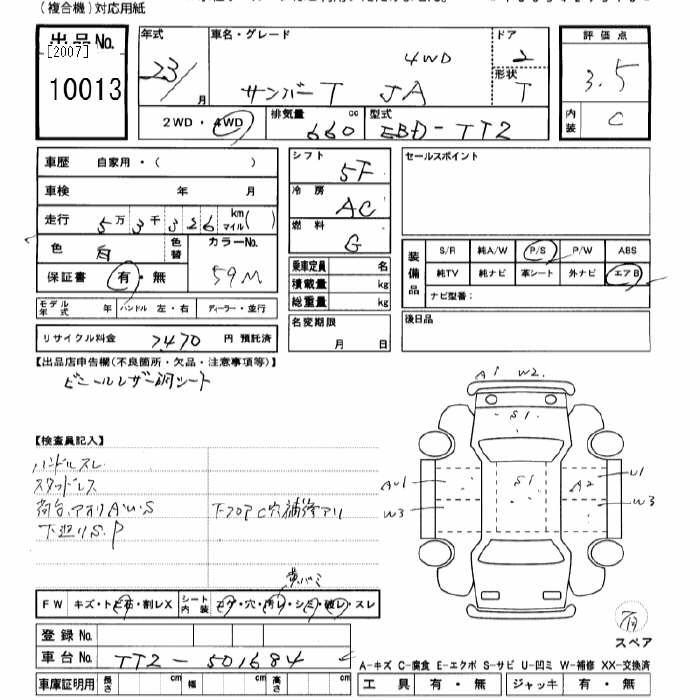 (複合機)対応用紙
出品No.
[2007]
10013
年式 23/ 月
車名・グレード 4WD
サンバーT JA
ドア 2
形状 T
評価点 3.5
内装 C
2WD・4WD
排気量 660 cc
型式 EBD-TT2
車歴 自家用・( )
車検 年 月
走行 5万3千326 km マイル( )
色 白 色替
カラーNo. 59M
保証書 有・無
モデル年式 年 ハンドル 左・右 ディーラー・並行
リサイクル料金 7470 円 預託済
シフト 5F
冷房 AC
燃料 G
乗車定員 名
積載量 kg
総重量 kg
名変期限 月 日
セールスポイント
装備品
S/R 純A/W P/S P/W ABS
純TV 純ナビ 革シート 外ナビ エアB
ナビ型番:
後日品
【出品店申告欄(不良箇所・欠品・注意事項等)】
ビニールレザー調シート
【検査員記入】
ハンドルスレ
スタッドレス
荷台、アオリA.U.S
下廻りS.P
下フロアC穴補修アリ
A1 W2
S1
S1
AU1
W3
A2
U1
W3
FW キズ・トビ石・割レX
シート内装 コゲ・穴・汚レ・シミ・破レ・スレ
登録No.
車台No. TT2-501684
車庫証明用 長さ cm 幅 cm 高さ cm
スペア
A-キズ C-腐食 E-エクボ S-サビ U-凹ミ W-補修 XX-交換済
工具 有・無 ジャッキ 有・無